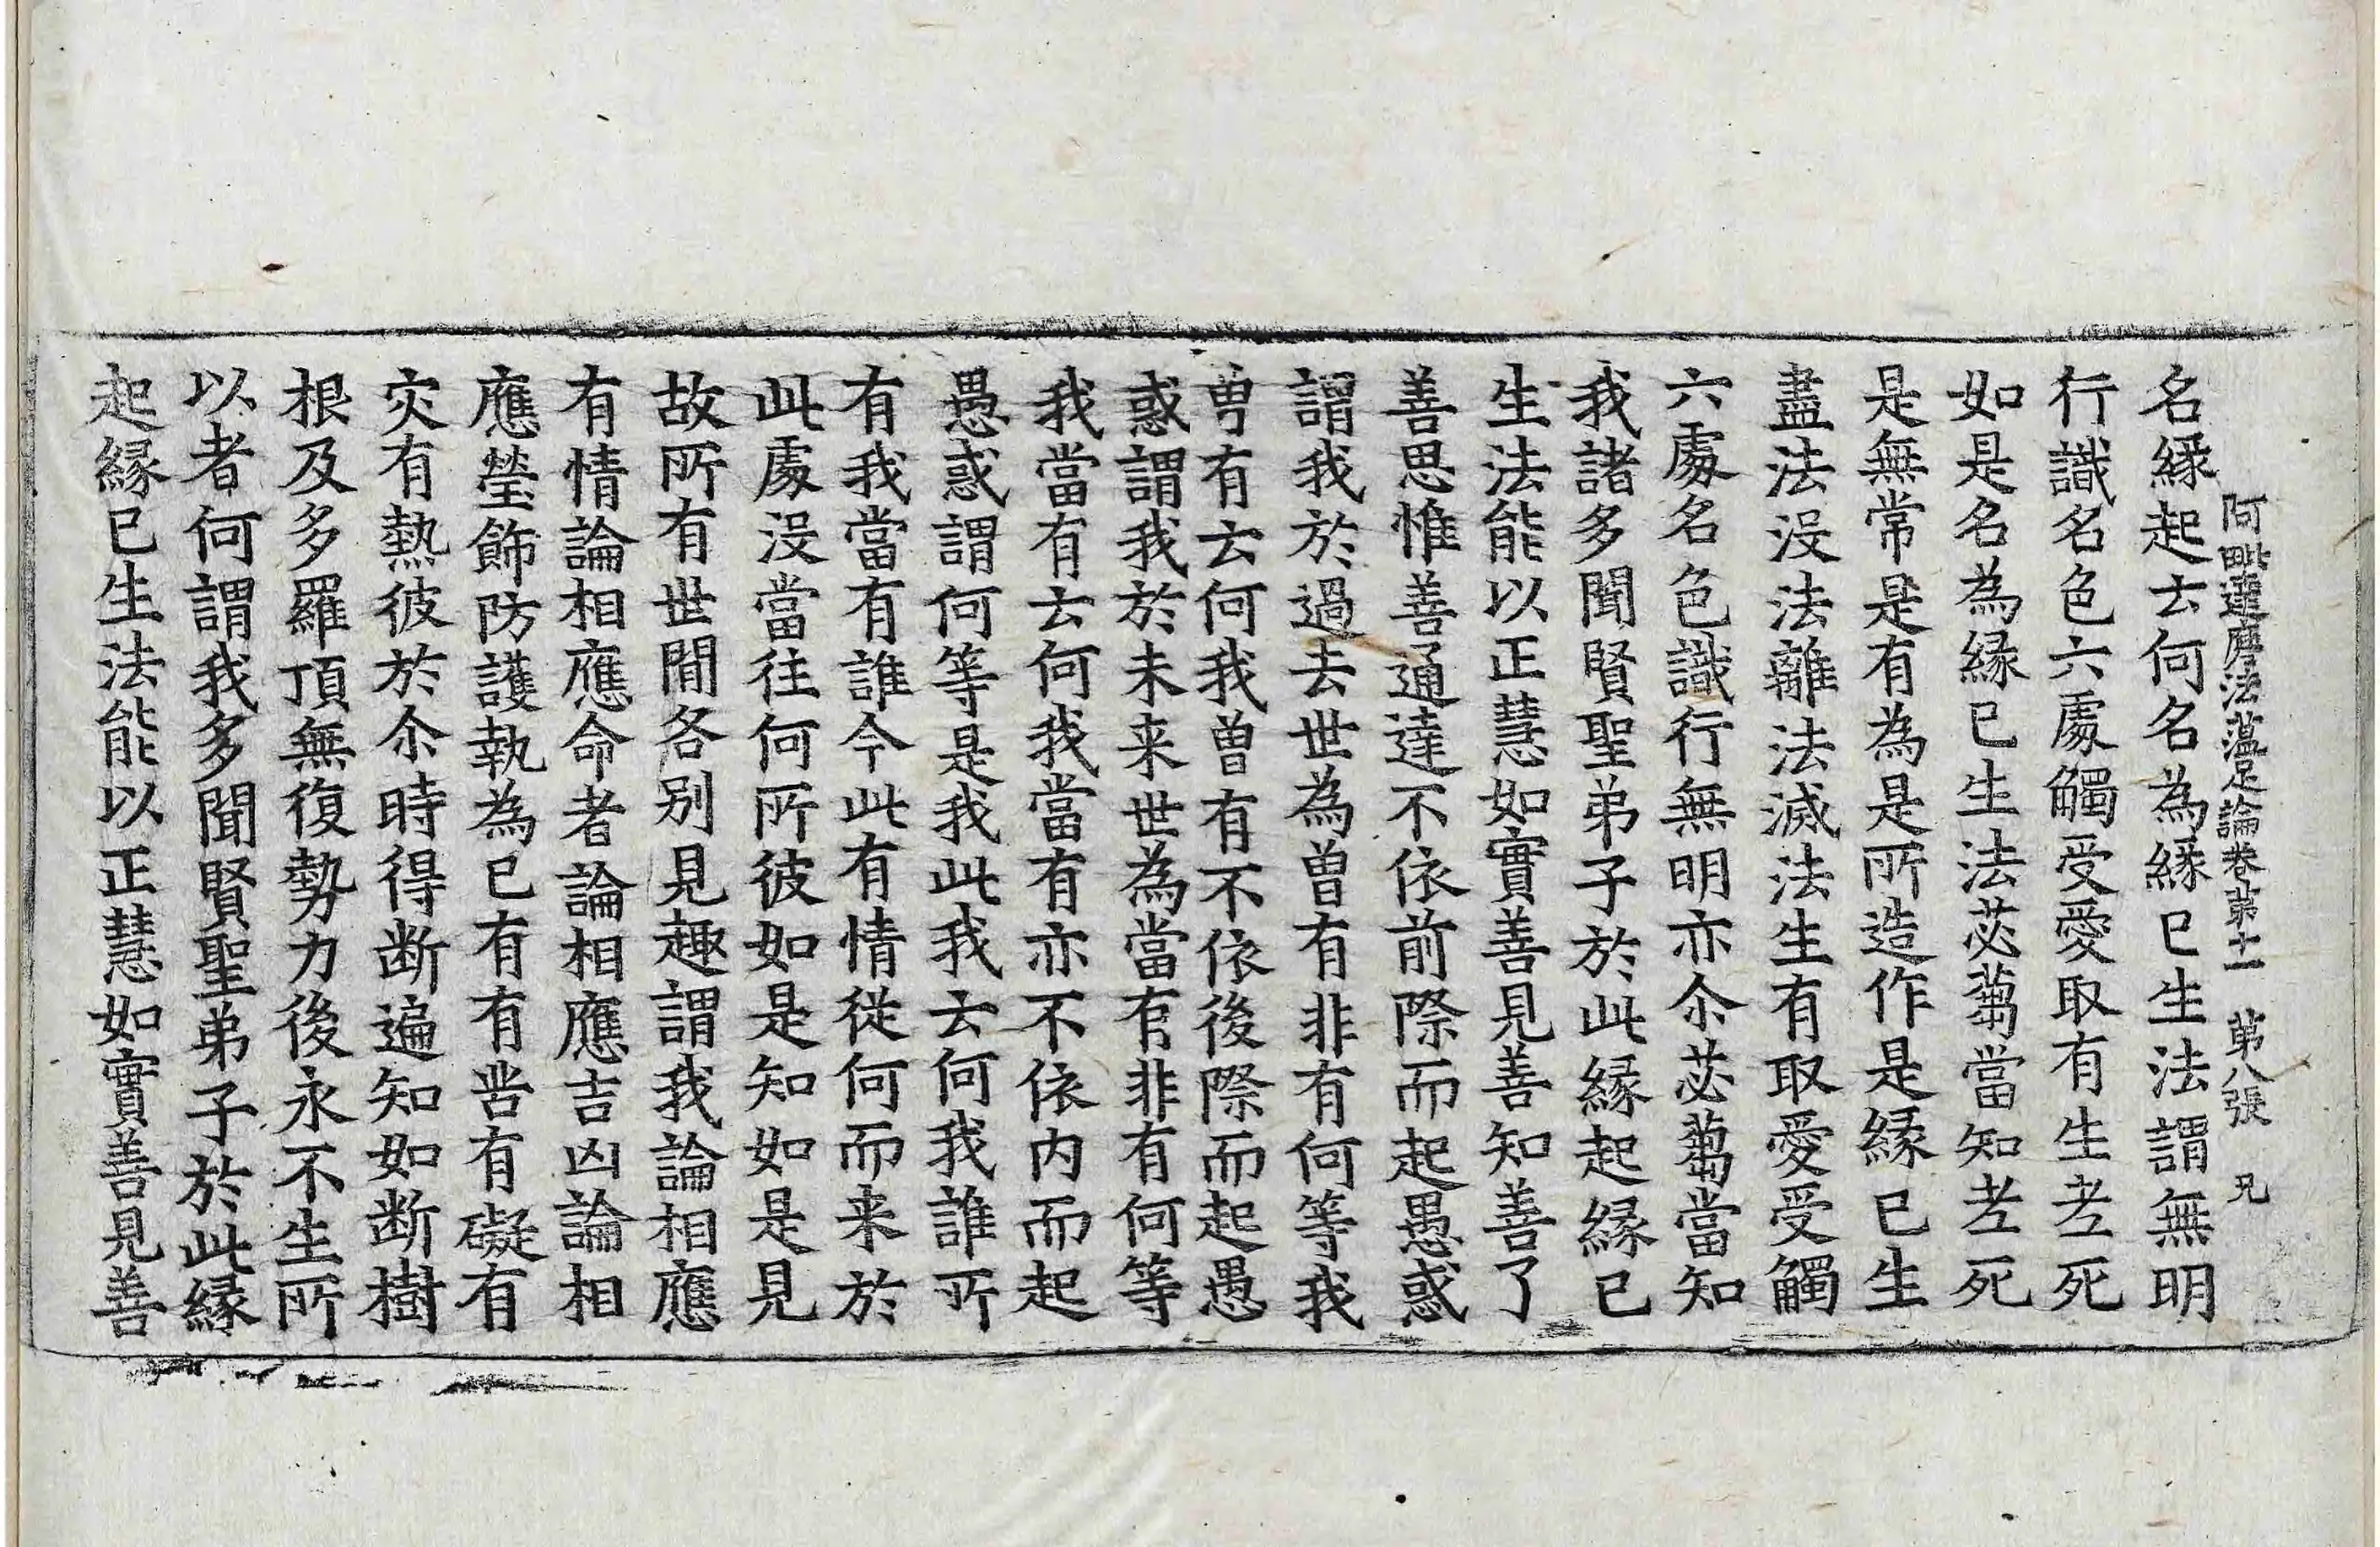 阿毗達磨法蘊足論卷苐十一 苐八張 兄
名緣起云何名為緣已生法謂無明
行識名色六處觸受愛取有生老死
如是名為緣已生法苾蒭當知老死
是無常是有為是所造作是緣已生
盡法沒法離法滅法生有取愛受觸
六處名色識行無明亦尒苾蒭當知
我諸多聞賢聖弟子於此緣起緣已
生法能以正慧如實善見善知善了
善思惟善通達不依前際而起愚惑
謂我於過去世為曾有非有何等我
曾有云何我曾有不依後際而起愚
惑謂我於未来世為當有非有何等
我當有云何我當有亦不依内而起
愚惑謂何等是我此我云何我誰所
有我當有誰今此有情從何而来於
此處沒當往何所彼如是知如是見
故所有世間各別見趣謂我論相應
有情論相應命者論相應吉凶論相
應瑩飾防護執為己有有苦有礙有
灾有熱彼於尒時得断遍知如断樹
根及多羅頂無復勢力後永不生所
以者何謂我多聞賢聖弟子於此緣
起緣已生法能以正慧如實善見善